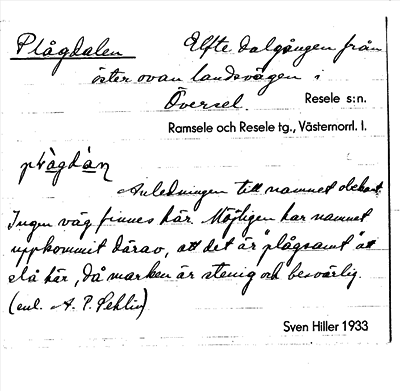 Plågdalen Elfte dalgången från
öster ovan landsvägen i
Översel. Resele s:n.
Ramsele och Resele tg., Västernorrl. l.
Anledningen till namnet obekant.
Ingen väg finnes här. Möjligen har namnet
uppkommit därav, att det är "plågsamt" att
slå här, då marken är stenig och besvärlig.
(enl. A. P. Sehlin)
Sven Hiller 1933